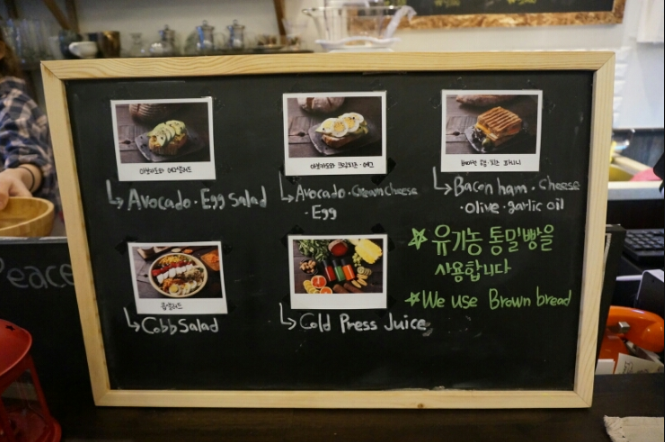 ↳Avocado · Egg Salad
↳Avocado · Creamcheese
· Egg
↳Bacon ham · cheese
· olive · garlic oil
콥샐러드
↳Cobb Salad
↳Cold Press Juice
☆유기농 통밀빵을
사용합니다
☆We use Brown bread
Peace